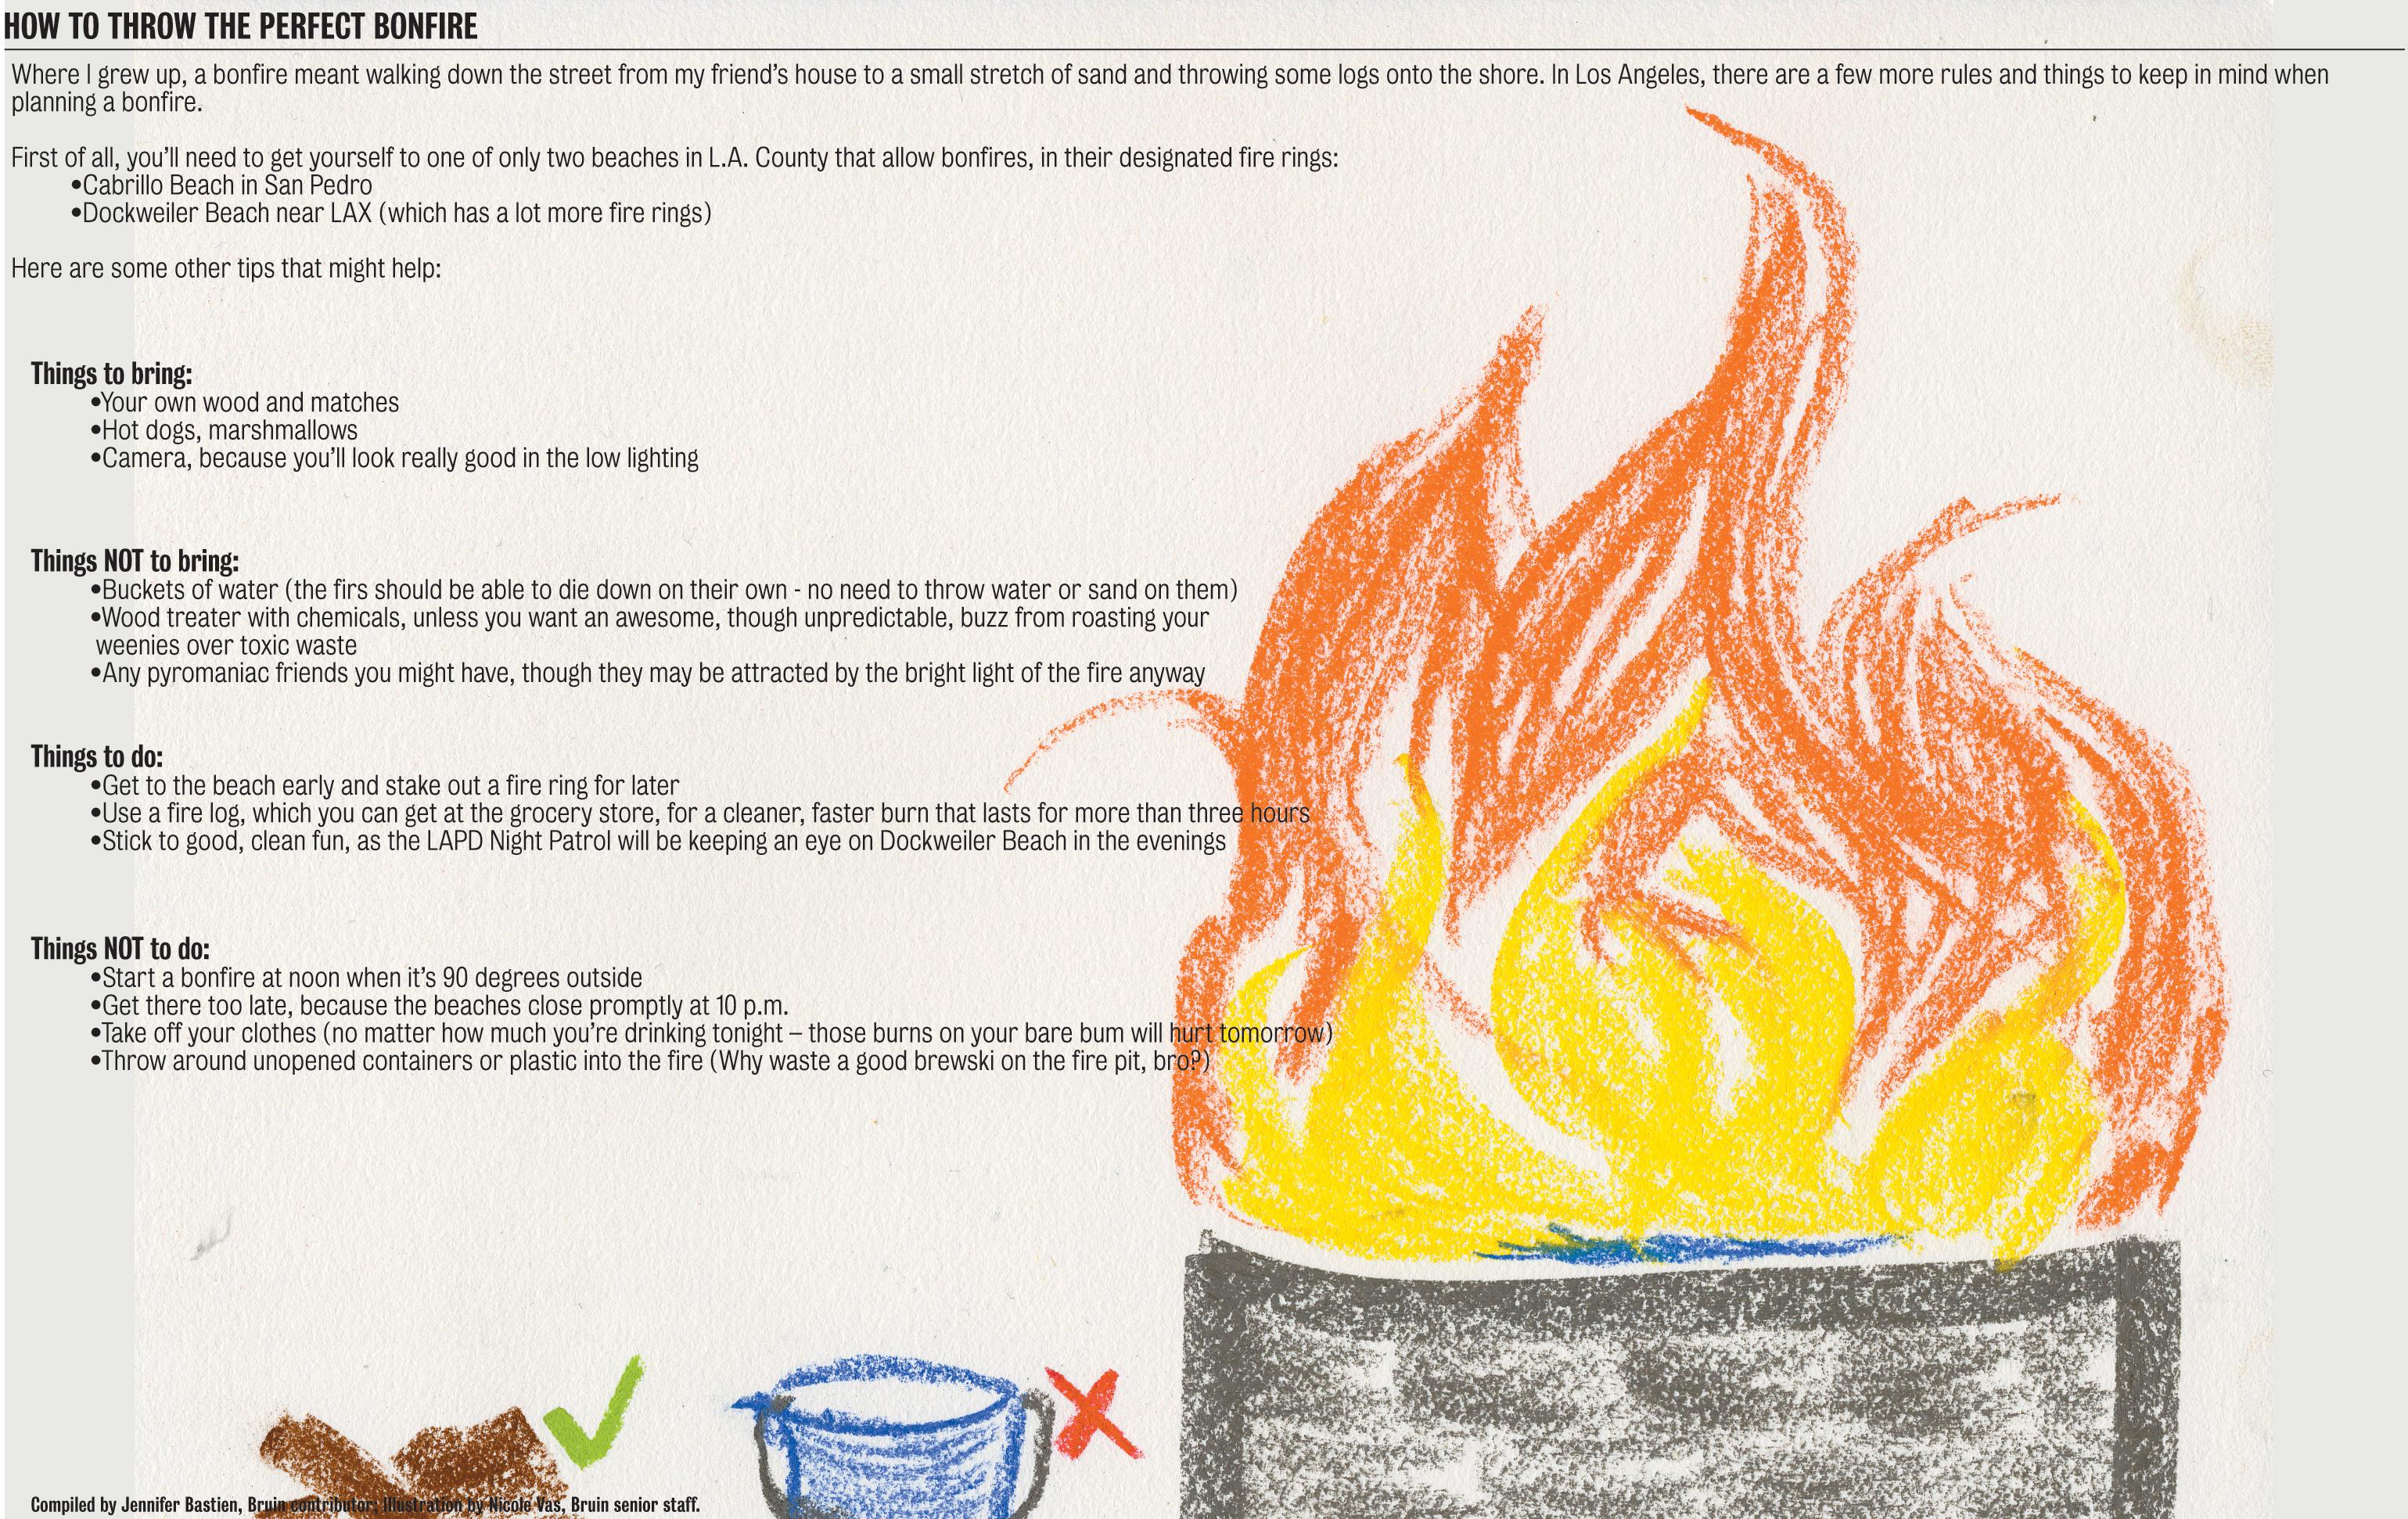 HOW TO THROW THE PERFECT BONFIRE
Where I grew up, a bonfire meant walking down the street from my friend's house to a small stretch of sand and throwing some logs onto the shore. In Los Angeles, there are a few more rules and things to keep in mind when
planning a bonfire.
First of all, you'll need to get yourself to one of only two beaches in L.A. County that allow bonfires, in their designated fire rings:
•Cabrillo Beach in San Pedro
•Dockweiler Beach near LAX (which has a lot more fire rings)
Here are some other tips that might help:
Things to bring:
•Your own wood and matches
•Hot dogs, marshmallows
•Camera, because you'll look really good in the low lighting
Things NOT to bring:
•Buckets of water (the firs should be able to die down on their own - no need to throw water or sand on them)
•Wood treater with chemicals, unless you want an awesome, though unpredictable, buzz from roasting your
weenies over toxic waste
•Any pyromaniac friends you might have, though they may be attracted by the bright light of the fire anyway
Things to do:
•Get to the beach early and stake out a fire ring for later
•Use a fire log, which you can get at the grocery store, for a cleaner, faster burn that lasts for more than three hours
•Stick to good, clean fun, as the LAPD Night Patrol will be keeping an eye on Dockweiler Beach in the evenings
Things NOT to do:
•Start a bonfire at noon when it's 90 degrees outside
•Get there too late, because the beaches close promptly at 10 p.m.
•Take off your clothes (no matter how much you're drinking tonight – those burns on your bare bum will hurt tomorrow)
•Throw around unopened containers or plastic into the fire (Why waste a good brewski on the fire pit, bro?)
Compiled by Jennifer Bastien, Bruin contributor; Illustration by Nicole Vas, Bruin senior staff.